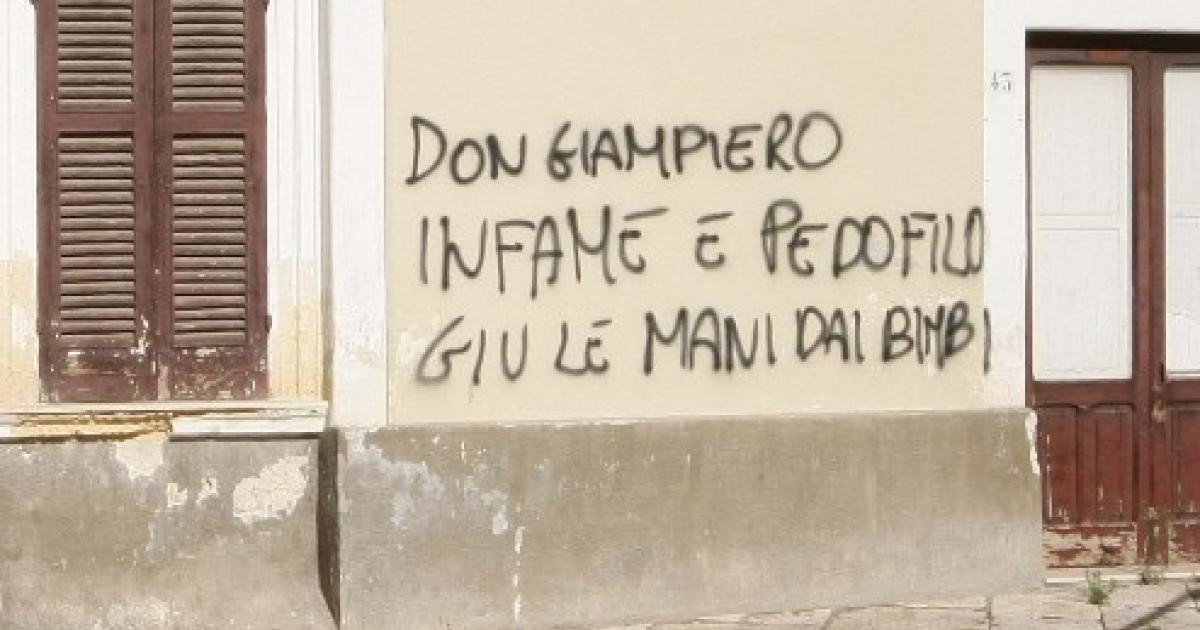 DON GIAMPIERO
INFAME E PEDOFILO
GIU LE MANI DAI BIMBI